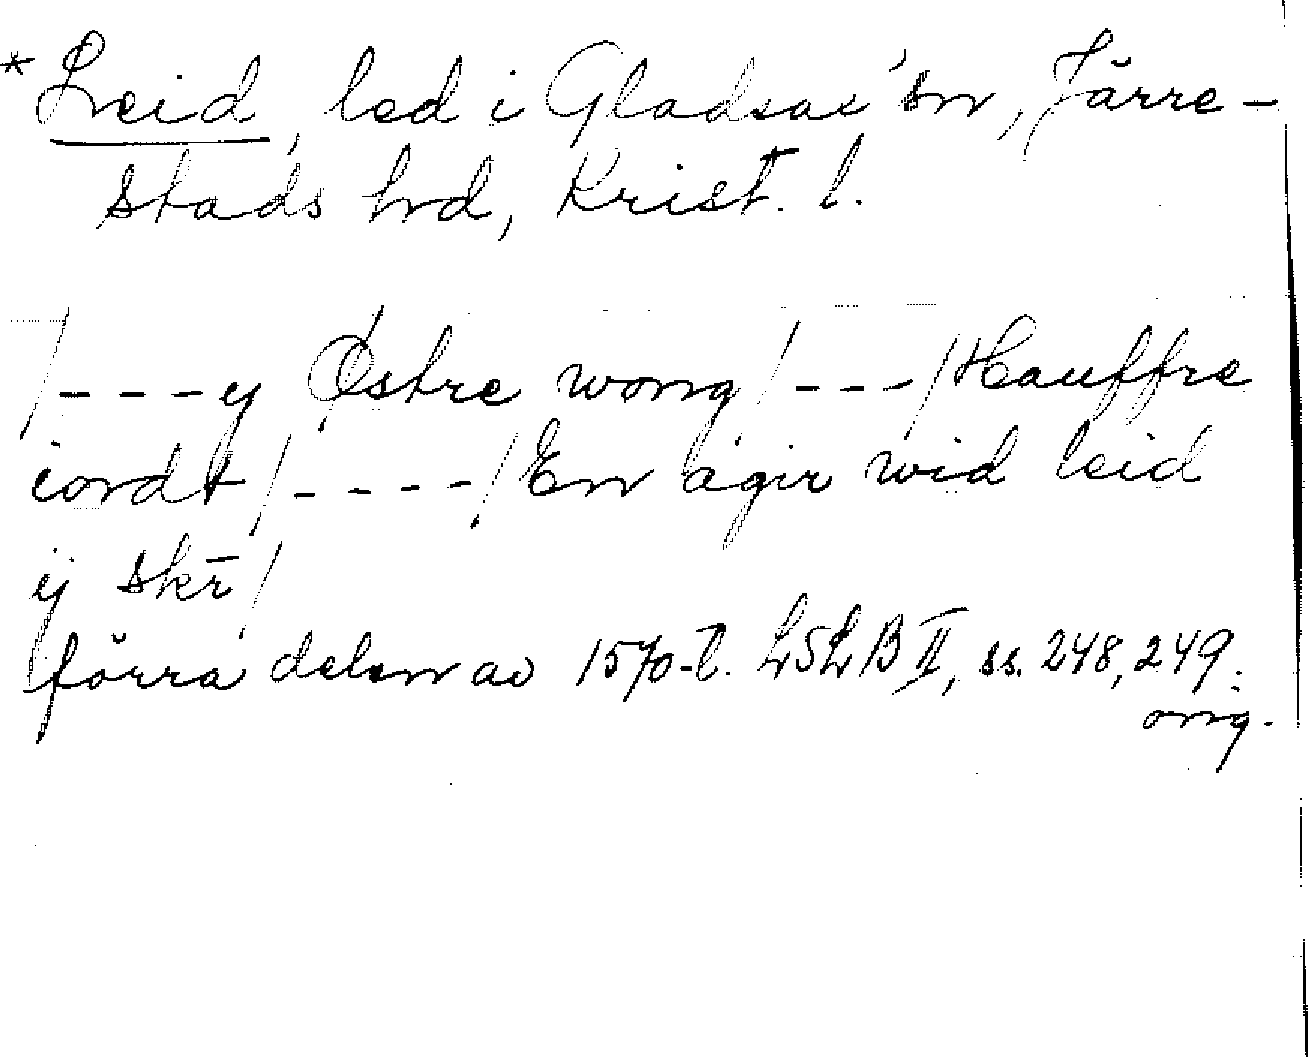 * Leid, led i Gladsax sn, Järre-
stads hd, Krist. l.
/----y Østre wong/---/Hauffre
iordt/----/En ager wid leid
ij skr̄/
förra delen av 1570-t. LSLB II, ss. 248, 249.
orig.